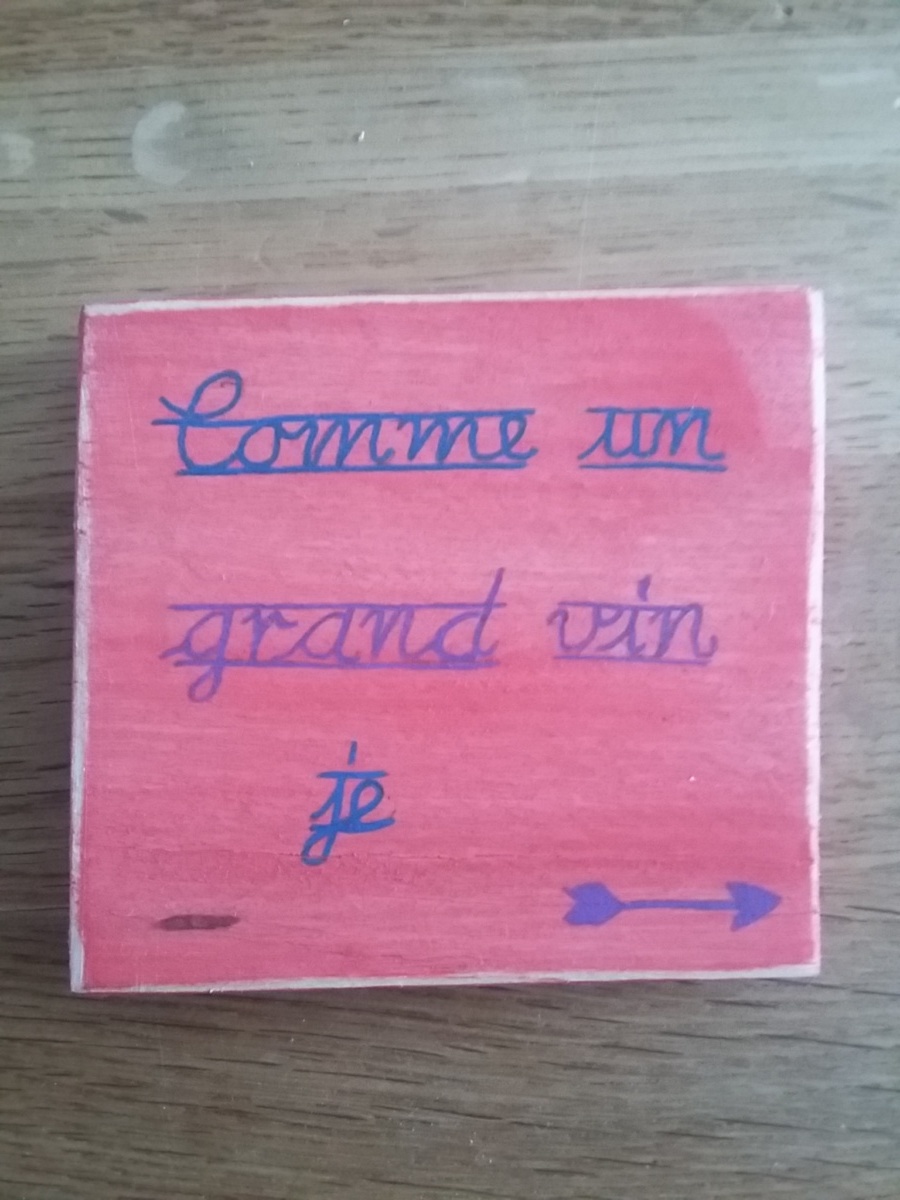 Comme un
grand vin
je